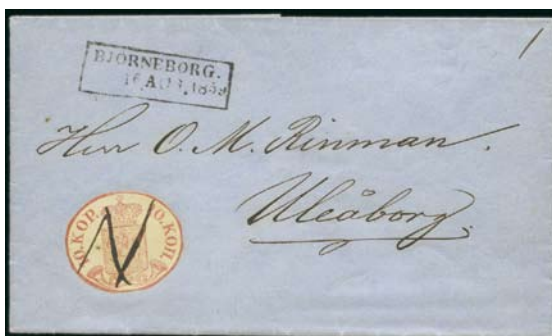 BJÖRNEBORG.
16.AUG.1859
Herr O. M. Rinman.
Uleåborg.
10.KOP. 10.КОП.